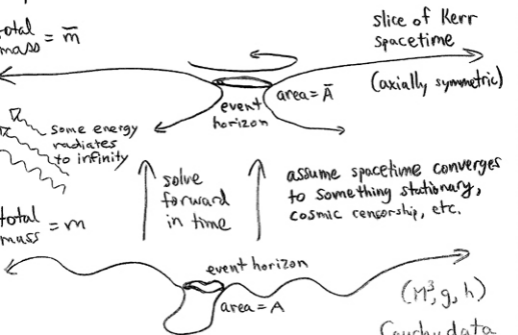 total
mass = m̄
slice of Kerr
spacetime
(axially symmetric)
area = Ā
event
horizon
some energy
radiates
to infinity
solve
forward
in time
assume spacetime converges
to something stationary,
cosmic censorship, etc.
total
mass = m
event horizon
area = A
(M³, g, h)
Cauchy data